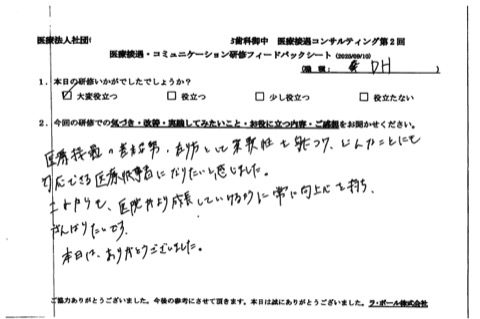 医療法人社団 歯科御中 医療接遇コンサルティング第2回
医療接遇・コミュニケーション研修フィードバックシート (2020/09/10)
(職種: DH )
1. 本日の研修いかがでしたでしょうか?
☑ 大変役立つ □ 役立つ □ 少し役立つ □ 役立たない
2. 今回の研修での気づき・改善・実践してみたいこと・お役に立つ内容・ご感想をお聞かせください。
医療接遇の 在り方として柔軟性を どんなことにも
対応できる医療従事者になりたいと感じました。
これからも、医院 より成長していける様に常に向上心を持ち、
がんばりたいです。
本日は、ありがとうございました。
ご協力ありがとうございました。今後の参考にさせて頂きます。本日は誠にありがとうございました。 ラ・ポール株式会社